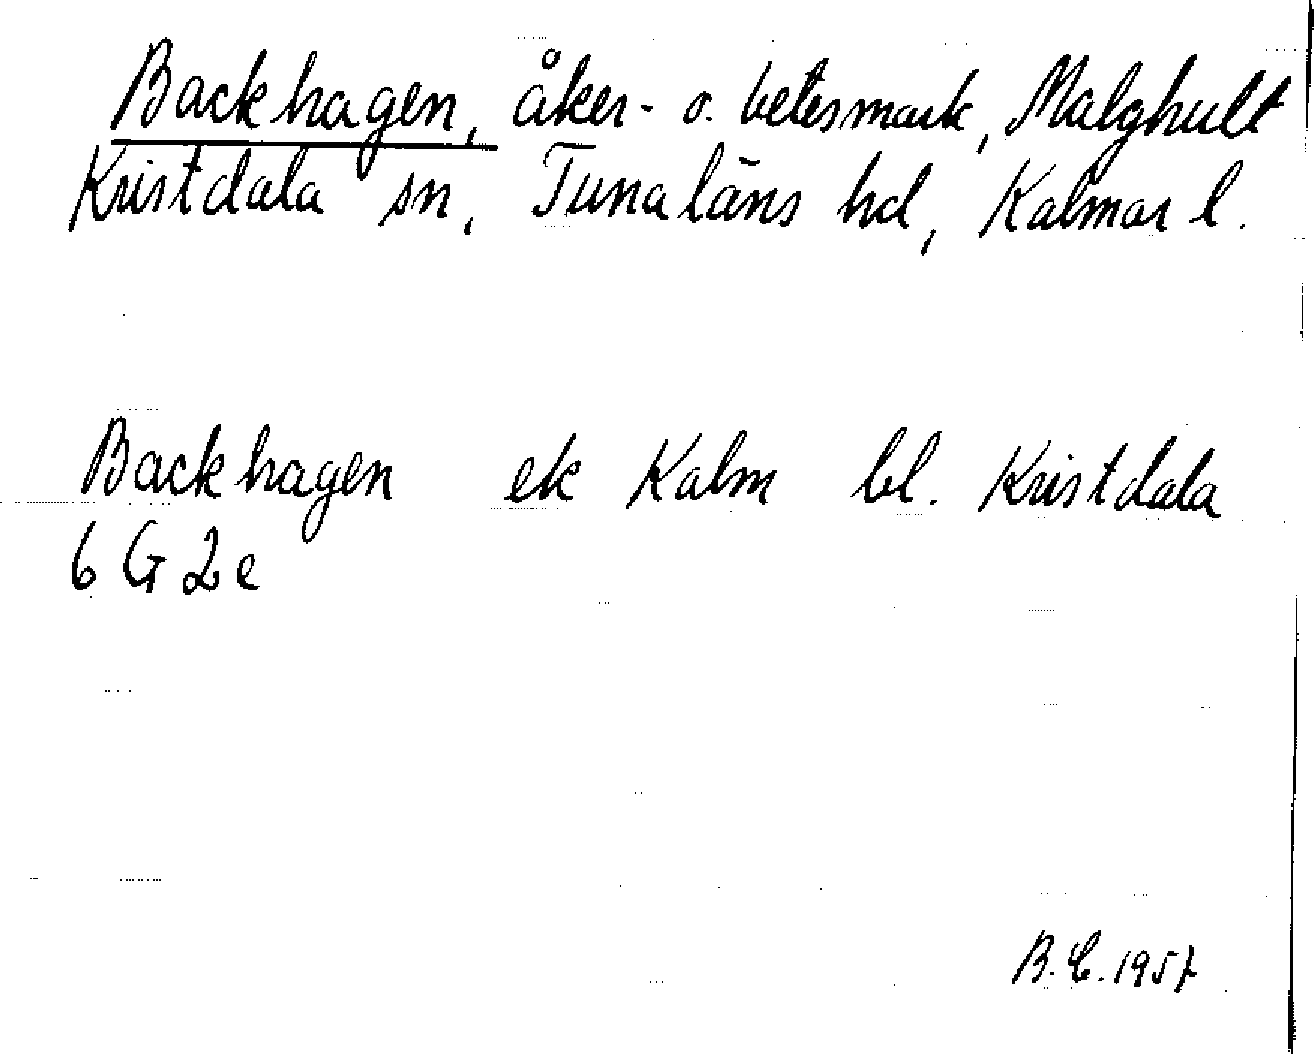 Backhagen, åker- o. betesmark, Malghult
Kristdala sn, Tunaläns hd, Kalmar l.
Backhagen ek Kalm bl. Kristdala
6 G 2 e
B.C. 1957